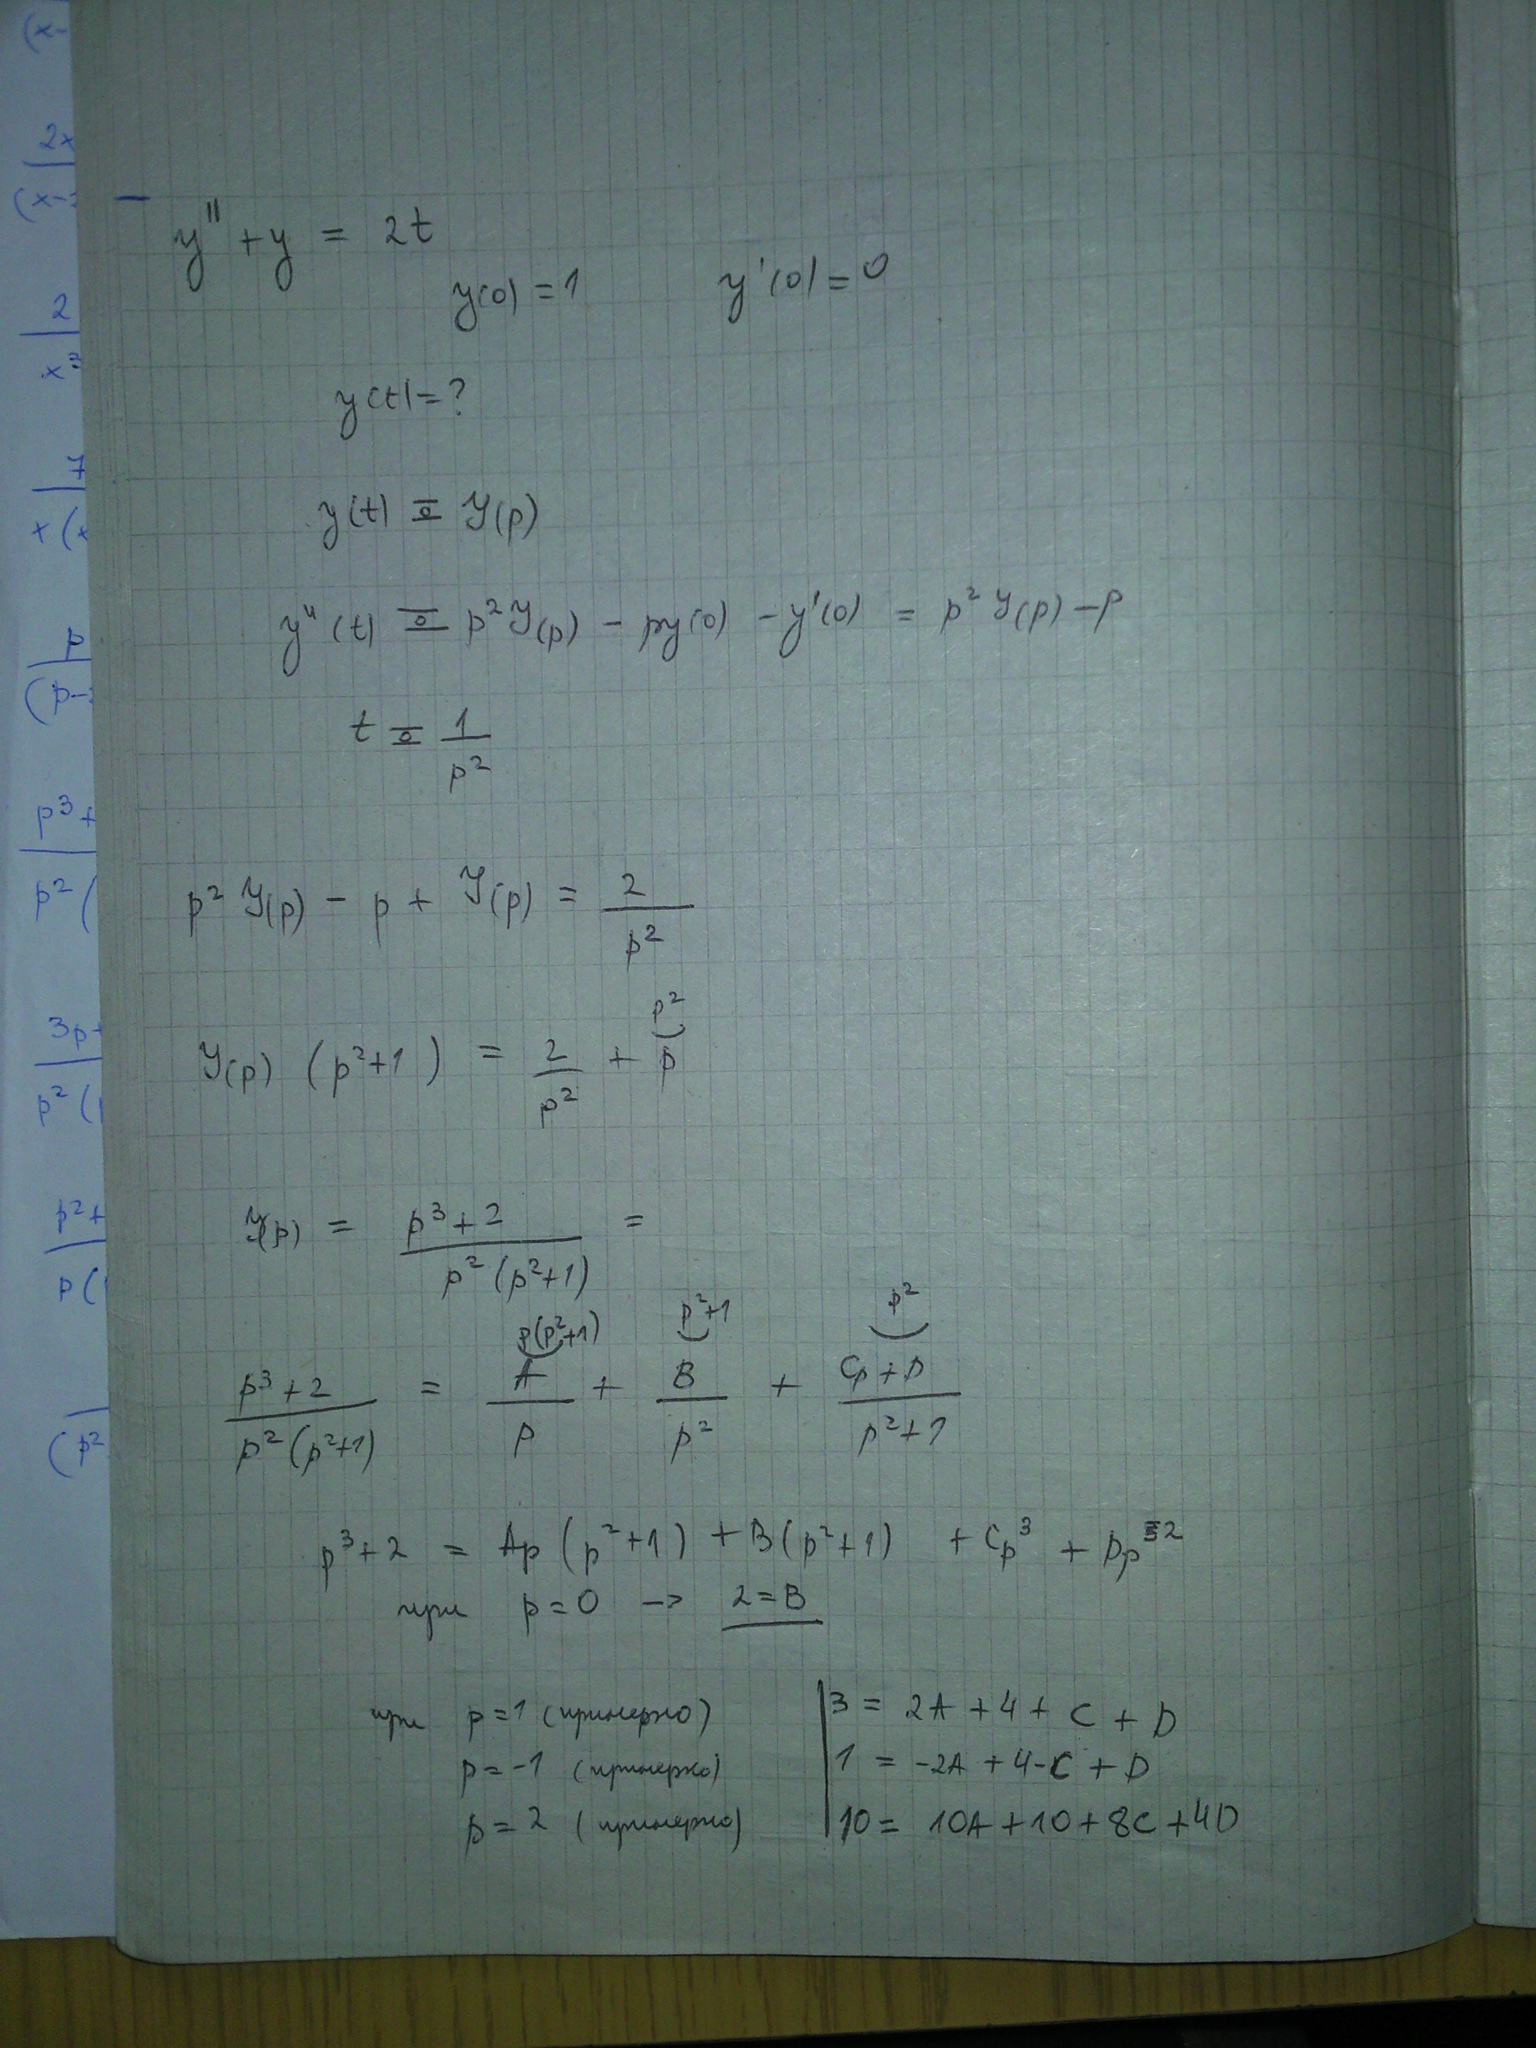 y'' + y = 2t
y(0) = 1 y'(0) = 0
y(t) = ?
y(t) ≗ Y(p)
y''(t) ≗ p² Y(p) - py(0) - y'(0) = p² Y(p) - p
t ≗ 1/p²
p² Y(p) - p + Y(p) = 2/p²
p²
Y(p) (p²+1) = 2/p² + p
Y(p) = (p³+2)/(p²(p²+1)) =
p(p²+1) p²+1 p²
(p³+2)/(p²(p²+1)) = A/p + B/p² + (Cp+D)/(p²+1)
p³+2 = Ap(p²+1) + B(p²+1) + Cp³ + Dp²
при p=0 -> 2=B
при p=1 (примерно) 3 = 2A + 4 + C + D
p=-1 (примерно) 1 = -2A + 4 - C + D
p=2 (примерно) 10 = 10A + 10 + 8C + 4D
(x-
2x
(x-
2
x³
7
x(x
p
(p-
p³+
p²(
3p+
p²(
p²+
p(
(p²